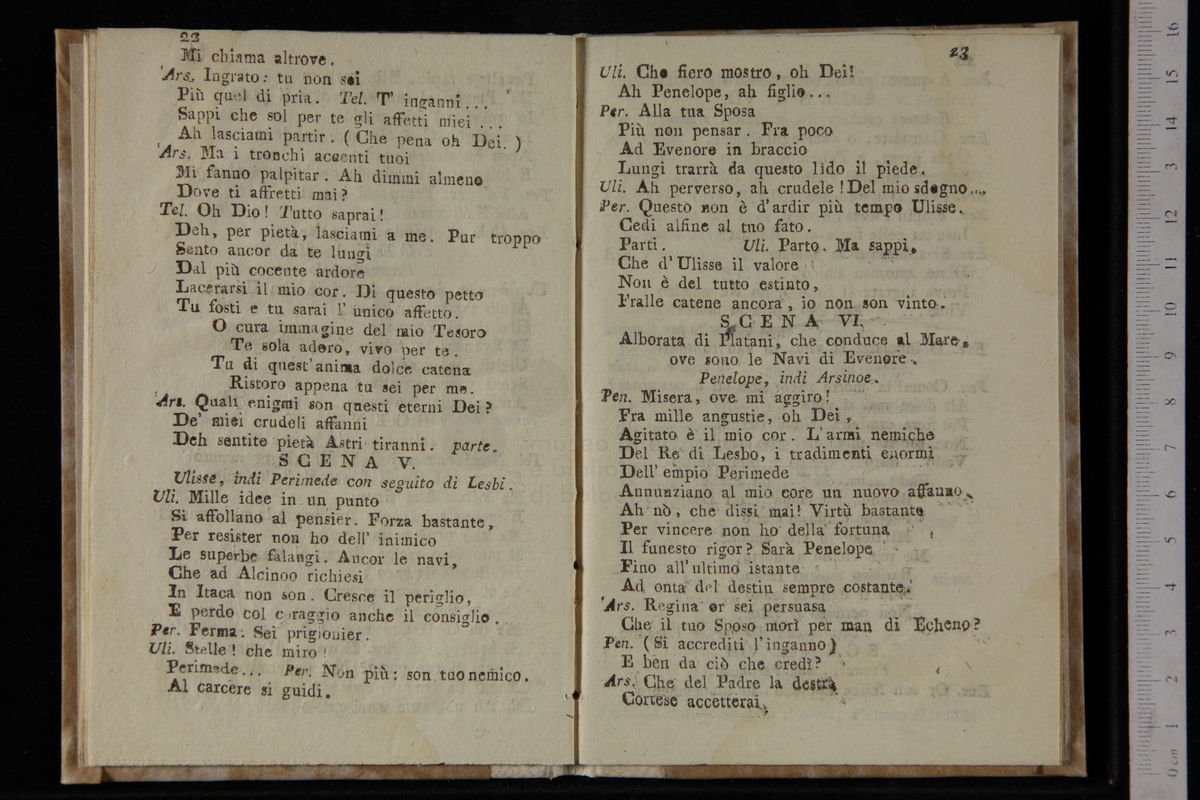 22
Mi chiama altrove.
Ars. Ingrato: tu non sei
Più quel di pria. Tel. T' inganni...
Sappi che sol per te gli affetti miei ...
Ah lasciami partir. ( Che pena oh Dei. )
Ars. Ma i tronchi accenti tuoi
Mi fanno palpitar. Ah dimmi almeno
Dove ti affretti mai?
Tel. Oh Dio! Tutto saprai!
Deh, per pietà, lasciami a me. Pur troppo
Sento ancor da te lungi
Dal più cocente ardore
Lacerarsi il mio cor. Di questo petto
Tu fosti e tu sarai l' unico affetto.
O cura immagine del mio Tesoro
Te sola adoro, vivo per te.
Tu di quest'anima dolce catena
Ristoro appena tu sei per me.
Ars. Quali enigmi son questi eterni Dei?
De' miei crudeli affanni
Deh sentite pietà Astri tiranni. parte.
SCENA V.
Ulisse, indi Perimede con seguito di Lesbi.
Uli. Mille idee in un punto
Si affollano al pensier. Forza bastante,
Per resister non ho dell' inimico
Le superbe falangi. Ancor le navi,
Che ad Alcinoo richiesi
In Itaca non son. Cresce il periglio,
E perdo col coraggio anche il consiglio.
Per. Ferma. Sei prigionier.
Uli. Stelle! che miro!
Perimede... Per. Non più: son tuo nemico.
Al carcere si guidi.
23
Uli. Che fiero mostro, oh Dei!
Ah Penelope, ah figlio...
Per. Alla tua Sposa
Più non pensar. Fra poco
Ad Evenore in braccio
Lungi trarrà da questo lido il piede.
Uli. Ah perverso, ah crudele! Del mio sdegno....
Per. Questo non è d'ardir più tempo Ulisse.
Cedi alfine al tuo fato.
Parti. Uli. Parto. Ma sappi,
Che d'Ulisse il valore
Non è del tutto estinto,
Fralle catene ancora, io non son vinto.
SCENA VI.
Alborata di Platani, che conduce al Mare,
ove sono le Navi di Evenore.
Penelope, indi Arsinoe.
Pen. Misera, ove mi aggiro!
Fra mille angustie, oh Dei,
Agitato è il mio cor. L'armi nemiche
Del Re di Lesbo, i tradimenti enormi
Dell' empio Perimede
Annunziano al mio core un nuovo affanno.
Ah nò, che dissi mai! Virtù bastante
Per vincere non ho della fortuna
Il funesto rigor? Sarà Penelope
Fino all'ultimo istante
Ad onta del destin sempre costante.
Ars. Regina or sei persuasa
Che il tuo Sposo morì per man di Echeno?
Pen. ( Si accrediti l'inganno )
E ben da ciò che credì?
Ars. Che del Padre la destra
Cortese accetterai,